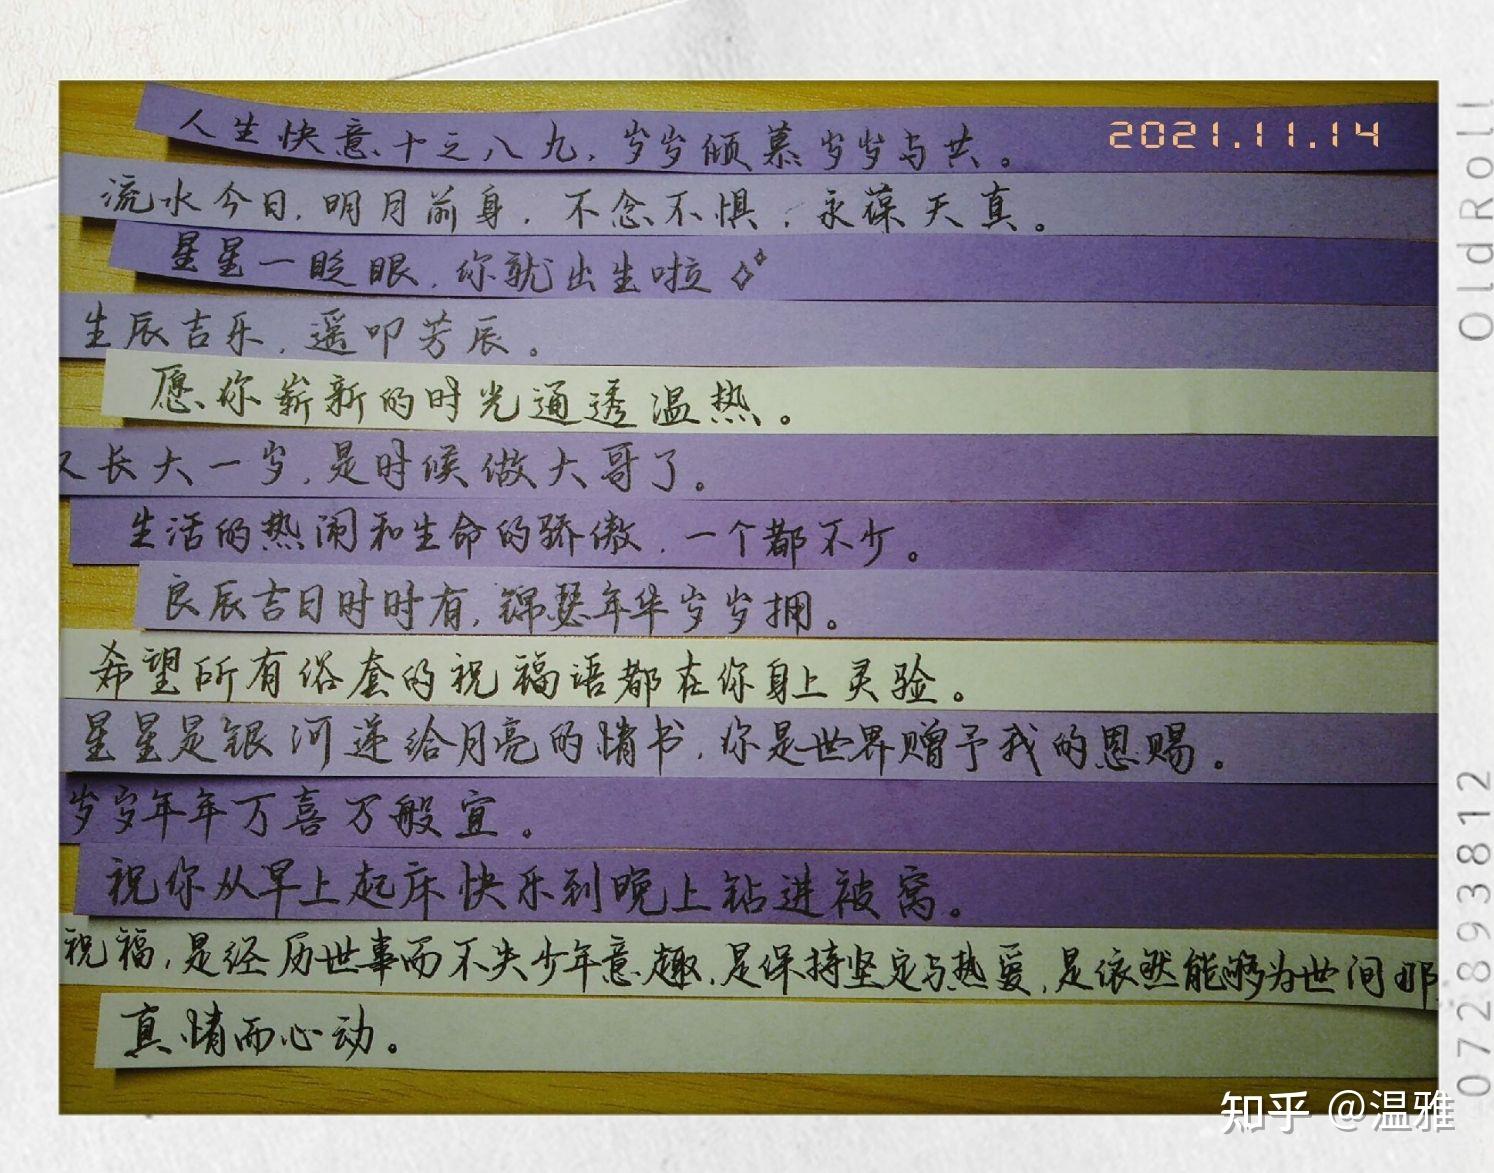 人生快意十之八九，岁岁倾慕岁岁与共。
2021.11.14
流水今日，明月前身，不念不惧，永葆天真。
星星一眨眼，你就出生啦
生辰吉乐，遥叩芳辰。
愿你崭新的时光通透温热。
又长大一岁，是时候做大哥了。
生活的热闹和生命的骄傲，一个都不少。
良辰吉日时时有，锦瑟年华岁岁拥。
希望所有俗套的祝福语都在你身上灵验。
星星是银河递给月亮的情书，你是世界赠予我的恩赐。
岁岁年年万喜万般宜。
祝你从早上起床快乐到晚上钻进被窝。
祝福，是经历世事而不失少年意趣，是保持坚定与热爱，是依然能够为世间那
真情而心动。
OldRoll
0728893812
知乎 @温雅